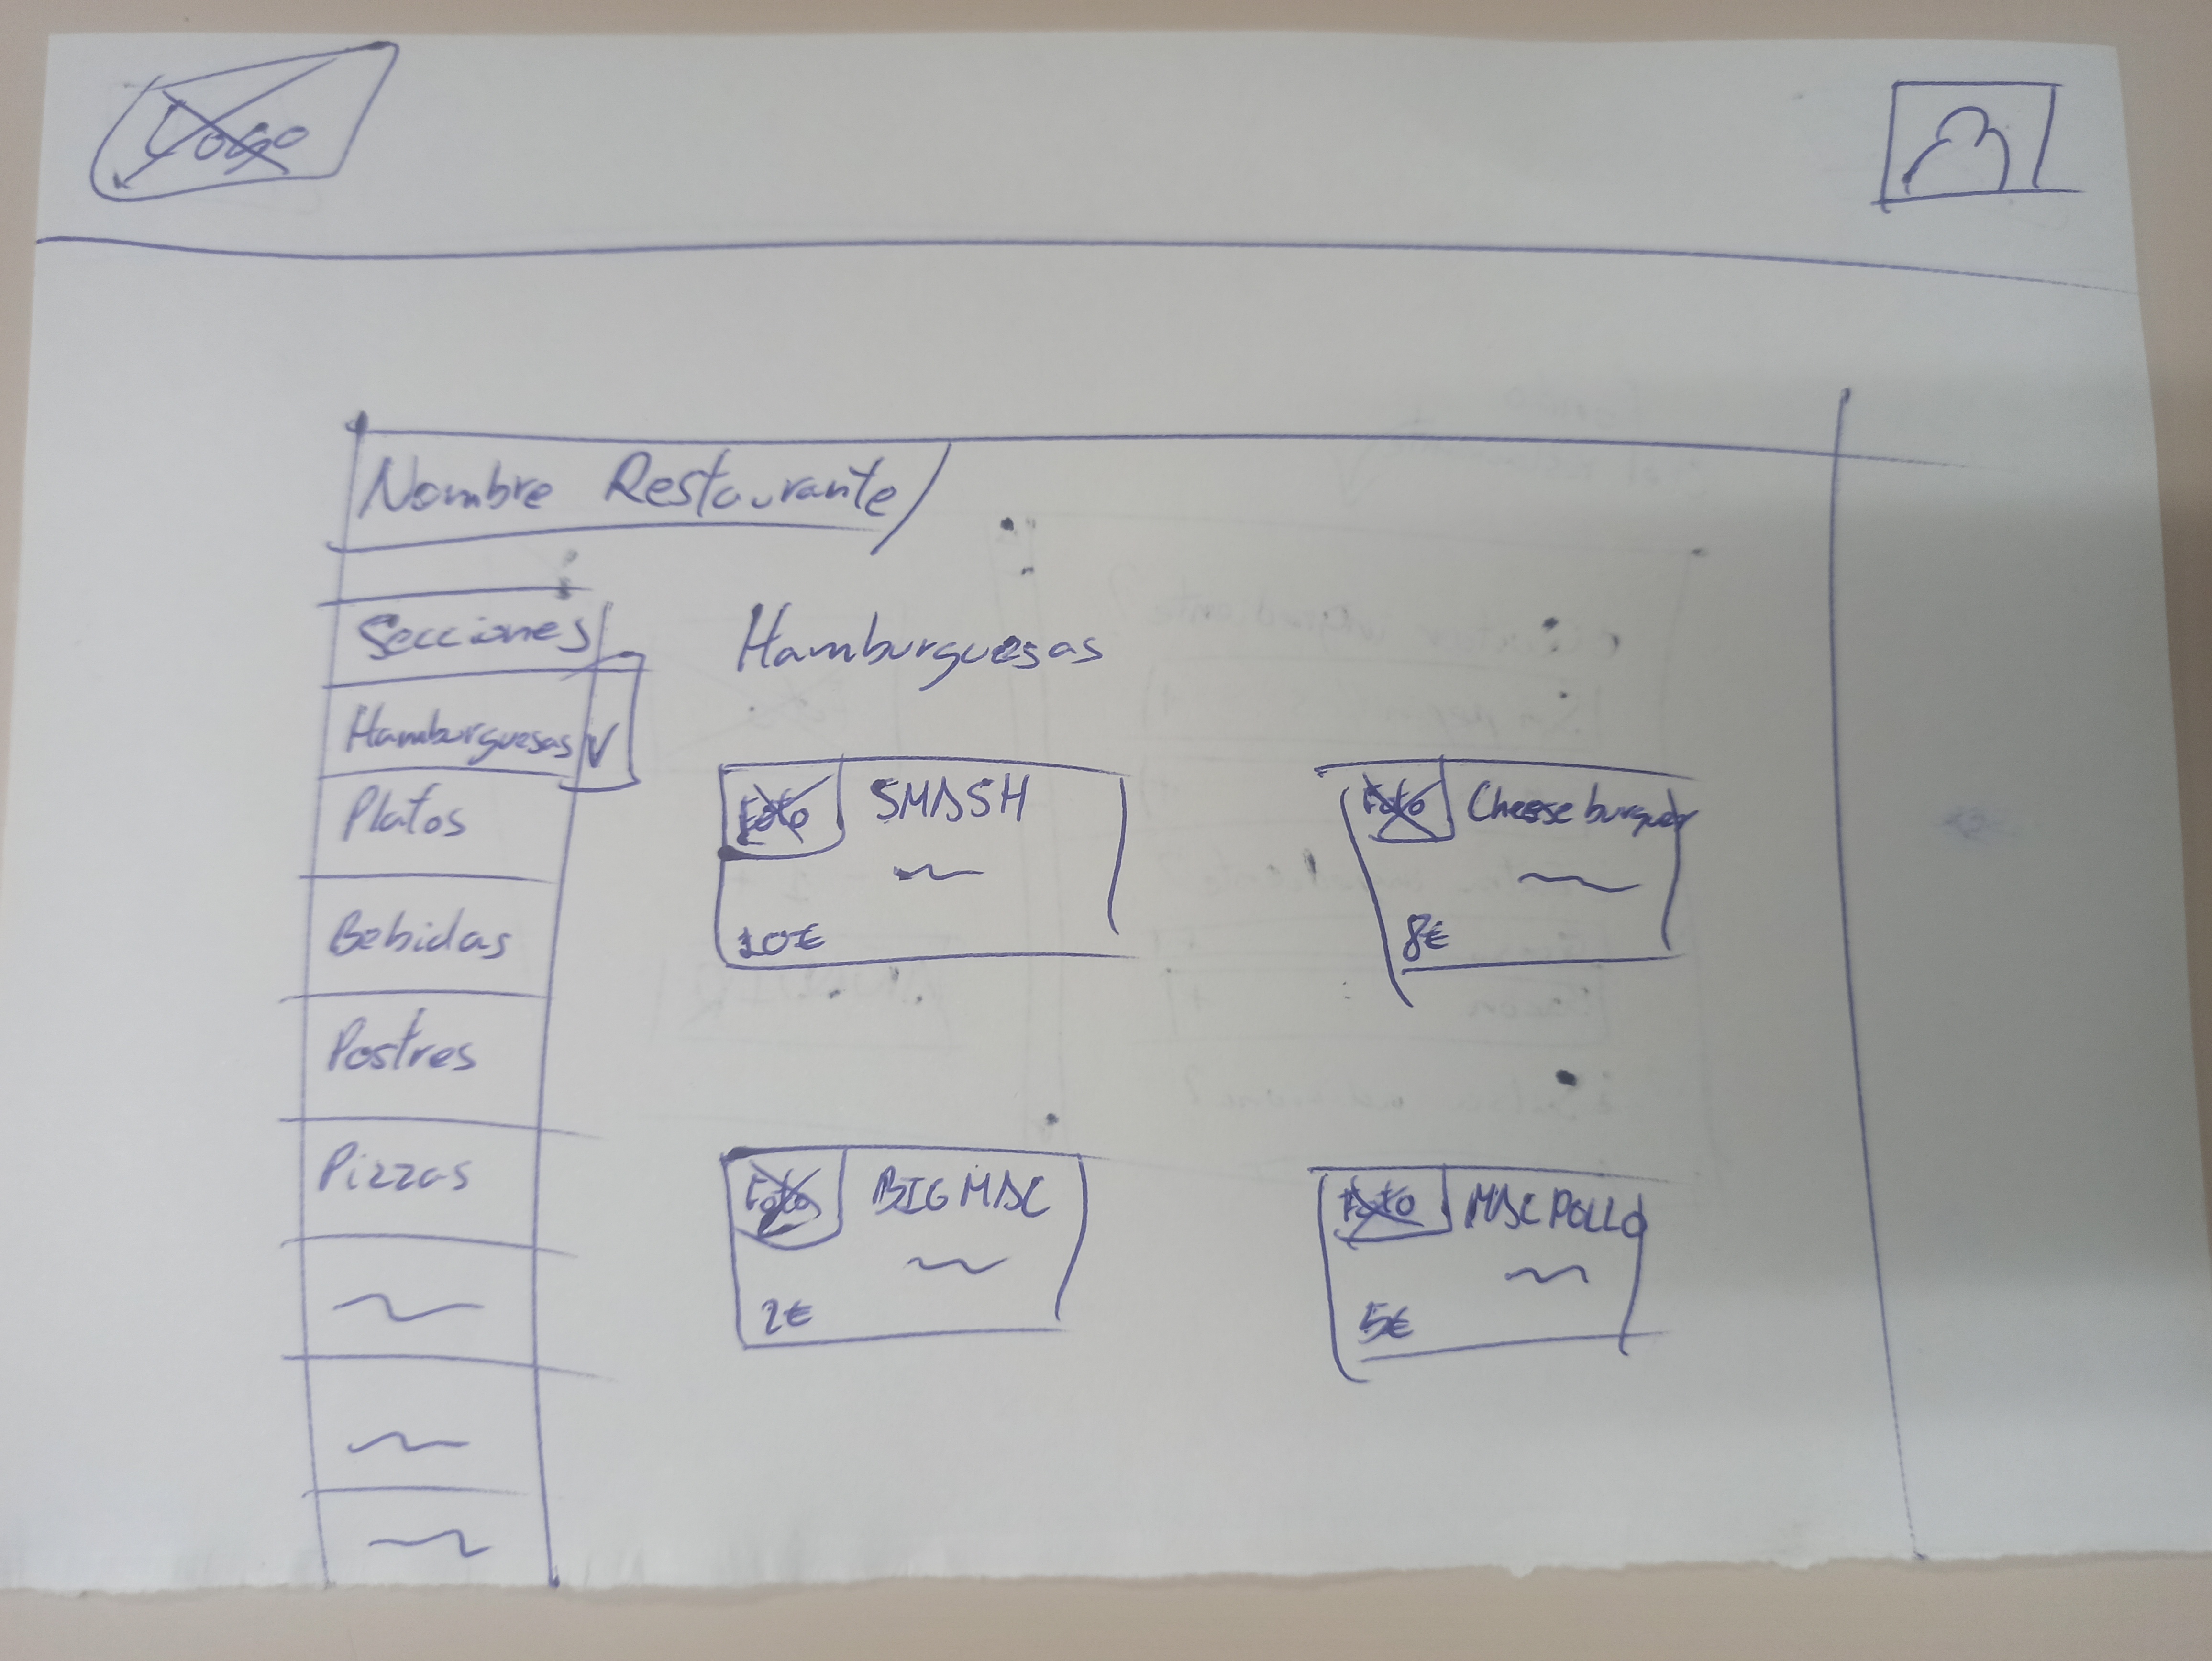 Logo
Nombre Restaurante
Secciones
Hamburguesas
Platos
Bebidas
Postres
Pizzas
Hamburguesas
Foto SMASH
10€
Foto Cheeseburguer
8€
Foto BIG MAC
2€
Foto MAC POLLO
5€